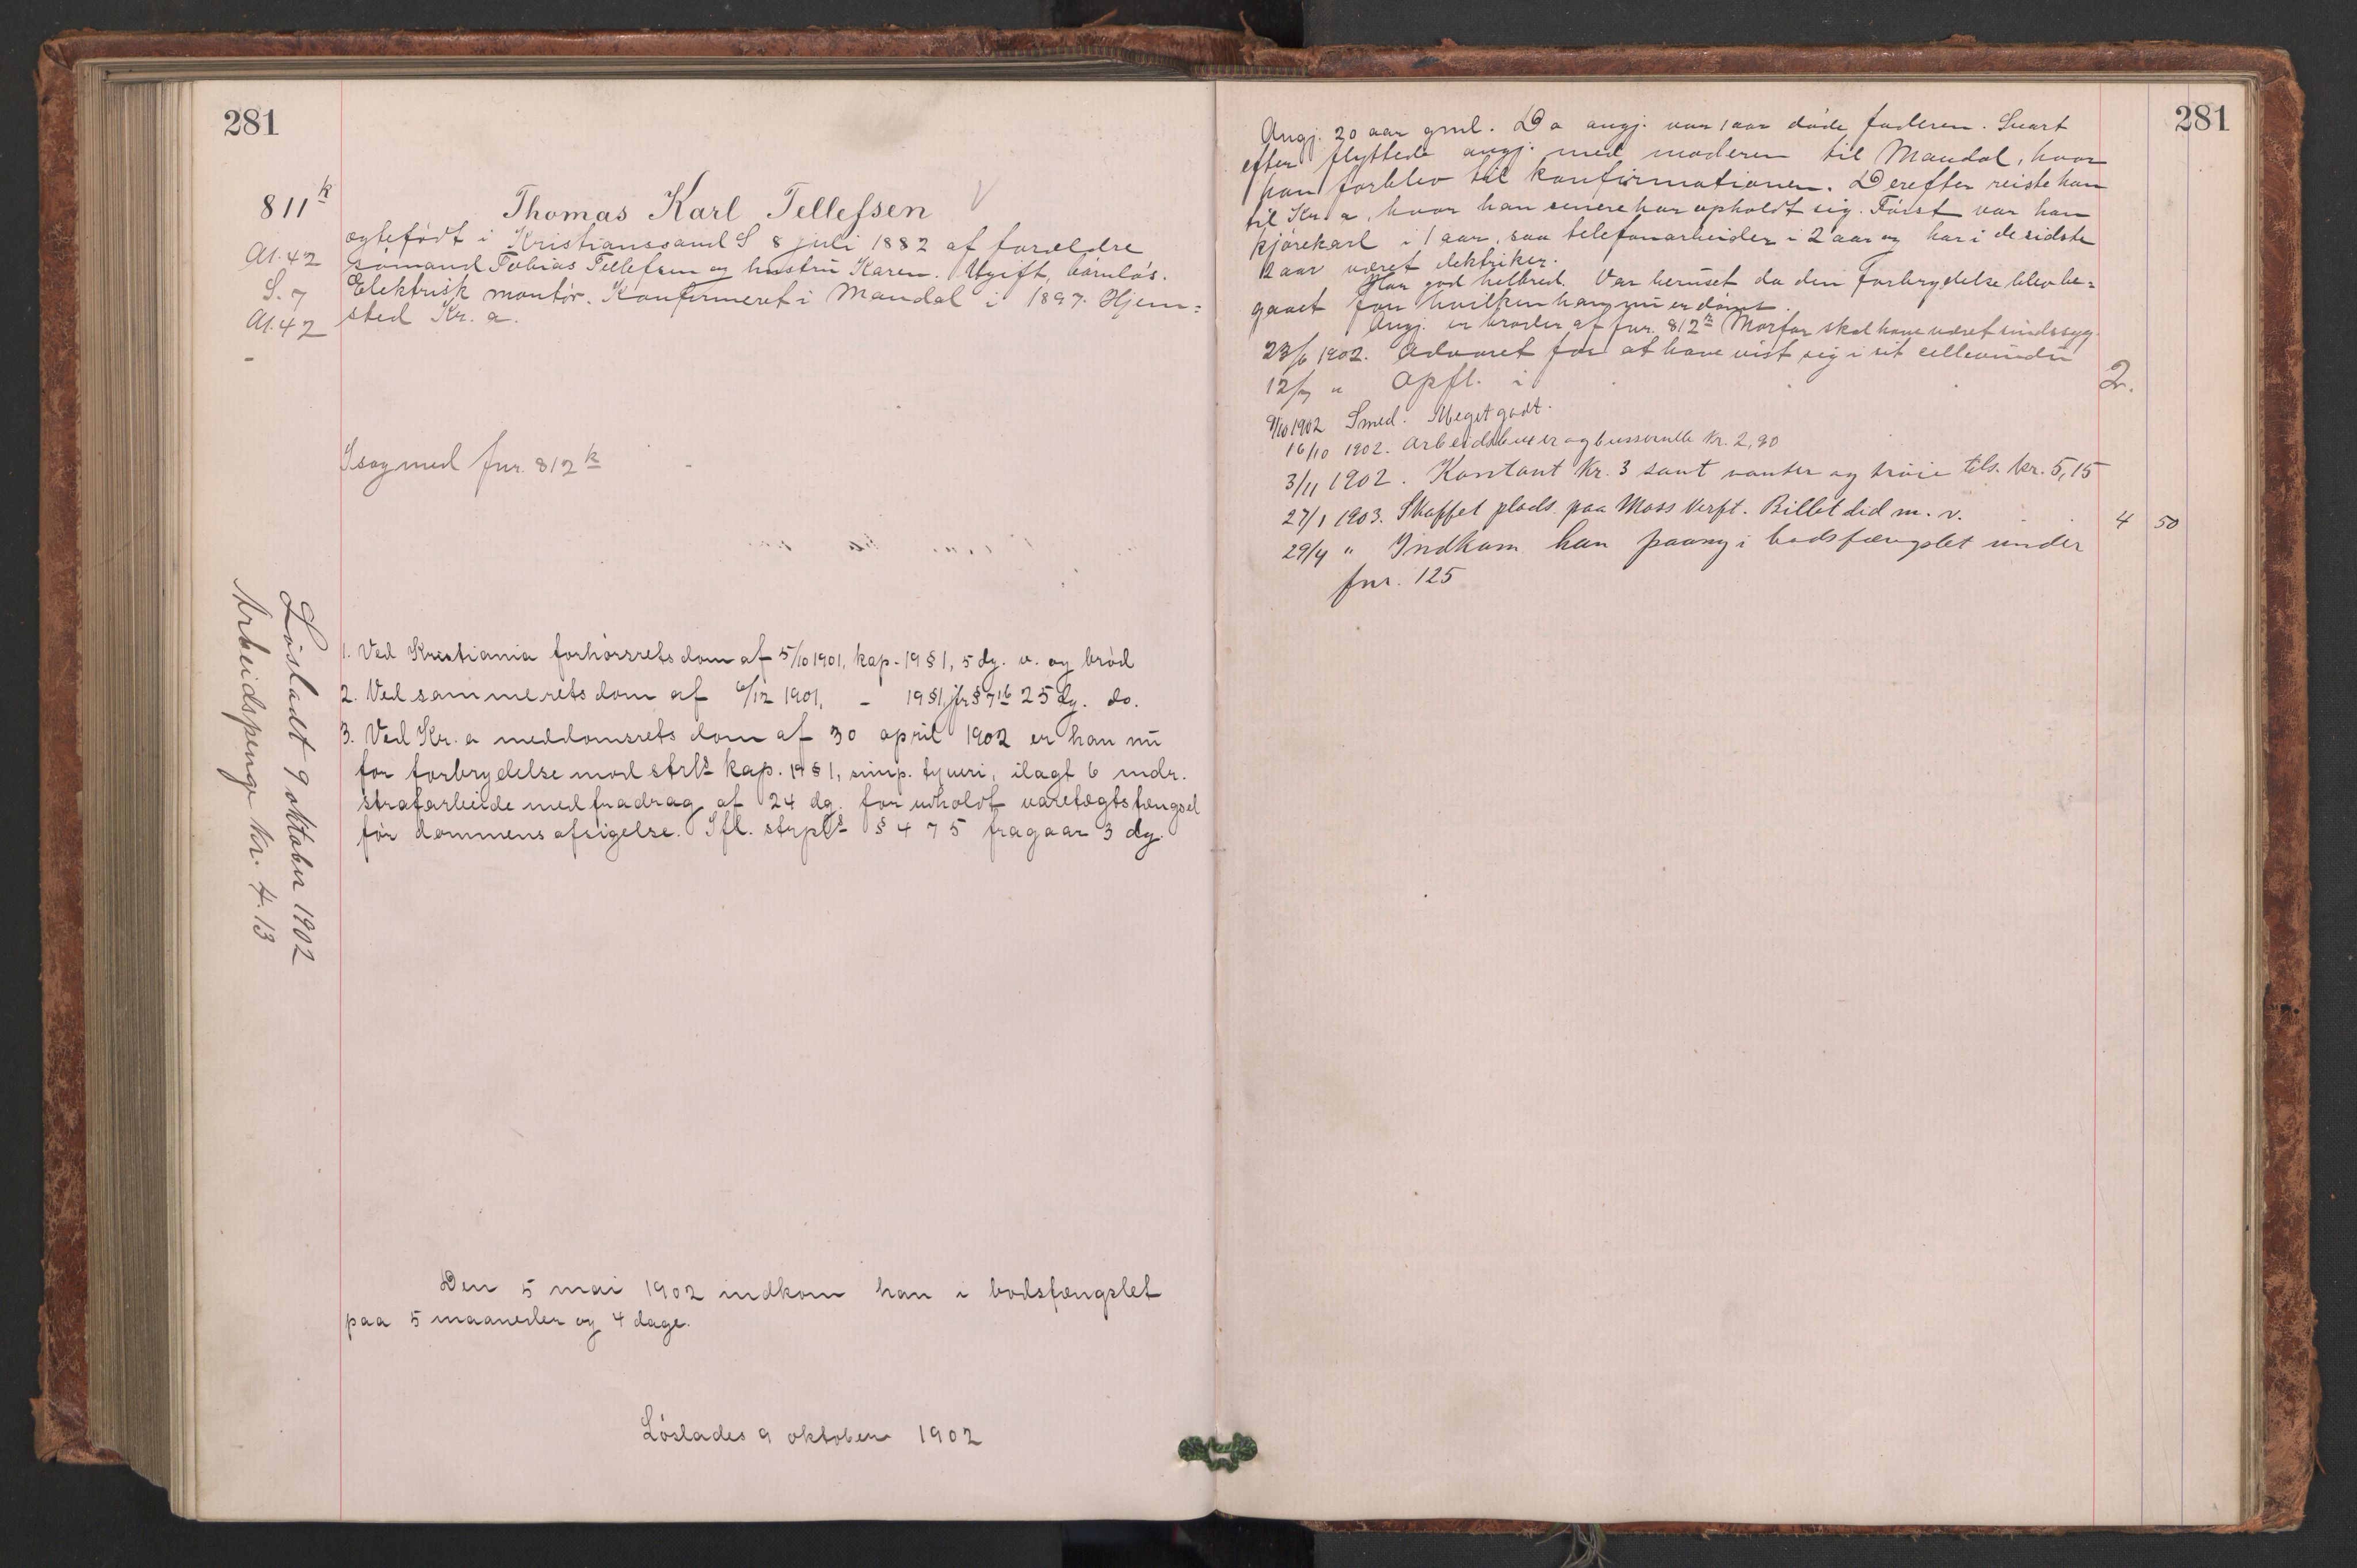 281
811 k
At. 42
S. 7
At. 42
-
Thomas Karl Tellefsen V
ægtefødt i Kristianssand S 8 juli 1882 af forældre
sømand Tobias Tellefsen og hustru Karen. Ugift, barnløs.
Elektrisk montør. Konfirmeret i Mandal i 1897. Hjem=
sted Kr. a.
I sag med fnr. 812 k
Løsladt 9 oktober 1902
Arbeidspenge kr. 4.13
1. Ved Kristiania forhørsrets dom af 5/10 1901, kap. 19 § 1, 5 dg. v. og brød
2. Ved samme rets dom af 6/12 1901, - 19 § 1, jfr § 7 1b 25 dg. do.
3. Ved Kr. a meddomsrets dom af 30 april 1902 er han nu
for forbrydelse mod strls kap. 19 § 1, simp. tyveri, ilagt 6 mdr.
strafarbeide med fradrag af 24 dg. for udholdt varetægtsfængsel
før dommens afsigelse. Ifl. strpls § 475 fragaar 3 dg.
Den 5 mai 1902 indkom han i bodsfængslet
paa 5 maaneder og 4 dage.
Løslades 9 oktober 1902
281
Angj. 20 aar gml. Da angj. var 1 aar døde faderen. Snart
efter flyttede angj. med moderen til Mandal, hvor
han forblev til konfirmationen. Derefter reiste han
til Kr. a, hvor han senere har opholdt sig. Først var han
kjørekarl i 1 aar, saa telefonarbeider i 2 aar og har i de sidste
2 aar været elektriker.
Har god helbred. Var beruset da den forbrydelse blev be=
gaaet for hvilken han nu er dømt.
Angj. er broder af fnr. 812 k Morfar skal have været sindssyg.
23/6 1902. Advaret for at have vist sig i sit cellevindu
12/7 " Opfl. i 2.
9/10 1902 Smed. Meget godt.
16/10 1902. Arbeidsbuxer og busserulle Kr. 2,90
3/11 1902. Kontant Kr. 3 samt vanter og trøie tils. kr. 5,15
27/1 1903. Skaffet plads paa Moss Verft. Billet did m. v. 4 50
29/4 " Indkom han paany i bodsfængslet under
fnr. 125